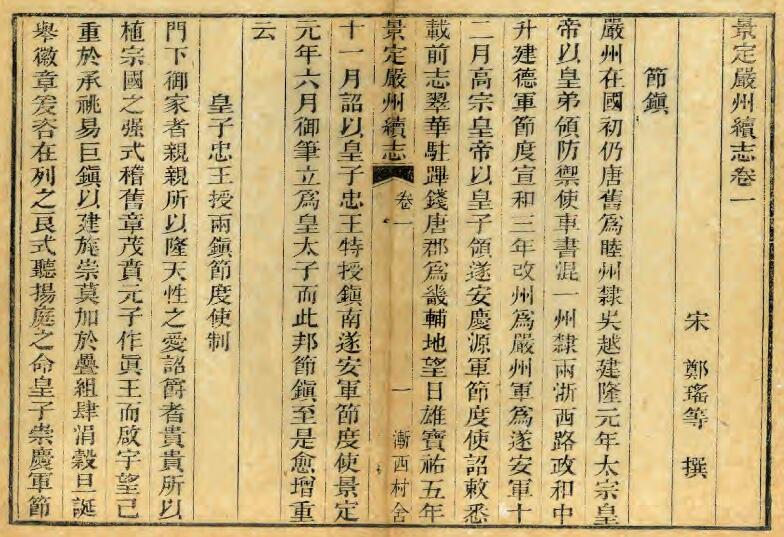 景定嚴州續志卷一
宋 鄭瑤等 撰
節鎮
嚴州在國初仍唐舊爲睦州隸吳越建隆元年太宗皇
帝以皇弟領防禦使車書混一州隸兩浙西路政和中
升建德軍節度宣和三年改州爲嚴州軍爲遂安軍十
二月高宗皇帝以皇子領遂安慶源軍節度使詔敕悉
載前志翠華駐蹕錢唐郡爲畿輔地望日雄寶祐五年
景定嚴州續志 卷一 一 漸西村舍
十一月詔以皇子忠王特授鎮南遂安軍節度使景定
元年六月御筆立爲皇太子而此邦節鎮至是愈增重
云
皇子忠王授兩鎮節度使制
門下御家者親親所以隆天性之愛詔爵者貴貴所以
植宗國之強式稽舊章茂賁元子作眞王而啟宇望已
重於承祧易巨鎮以建旄崇莫加於疊組肆涓穀旦誕
舉徽章爰咨在列之良式聽揚庭之命皇子崇慶軍節